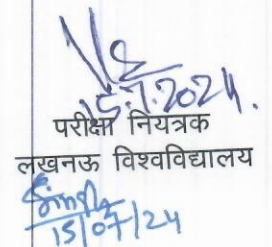 15.7.2024.
परीक्षा नियत्रक
लखनऊ विश्वविद्यालय
15/07/24